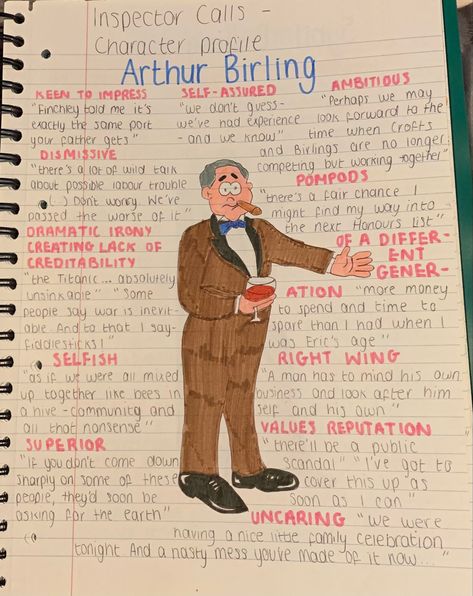 Inspector Calls -
Character profile
Arthur Birling
KEEN TO IMPRESS
"Finchley told me it's
exactly the same port
your father gets"
DISMISSIVE
"there's a lot of wild talk
about possible labour trouble
(...) Don't worry. We've
passed the worse of it"
DRAMATIC IRONY
CREATING LACK OF
CREDITABILITY
"the Titanic... absolutely
unsinkable" "Some
people say war is inevit-
able. And to that I say-
fiddlesticks!"
SELFISH
"as if we were all mixed
up together like bees in
a hive - community and
all that nonsense"
SUPERIOR
"If you don't come down
sharply on some of these
people, they'd soon be
asking for the earth"
SELF-ASSURED
"we don't guess-
we've had experience
- and we know"
AMBITIOUS
"Perhaps we may
look forward to the
time when Crofts
and Birlings are no longer
competing but working together"
POMPODS
"there's a fair chance I
might find my way into
the next Honours list"
OF A DIFFER-
ENT
GENER-
ATION "more money
to spend and time to
spare than I had when I
was Eric's age"
RIGHT WING
"A man has to mind his own
business and look after him
self and his own"
VALUES REPUTATION
"there'll be a public
scandal" "I've got to
cover this up as
soon as I can"
UNCARING "We were
having a nice little family celebration
tonight And a nasty mess you've made of it now..."